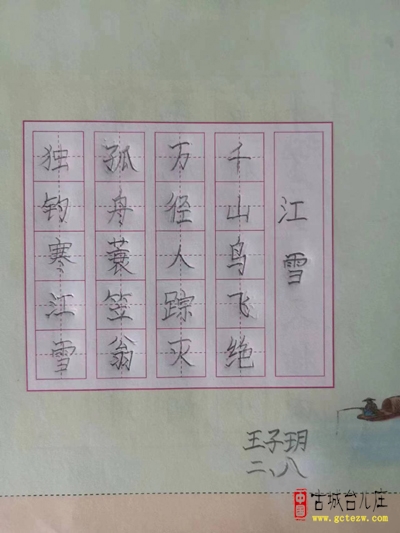 江雪
千山鸟飞绝
万径人踪灭
孤舟蓑笠翁
独钓寒江雪
王子玥
二、八
中国
古城台儿庄
www.gctezw.com